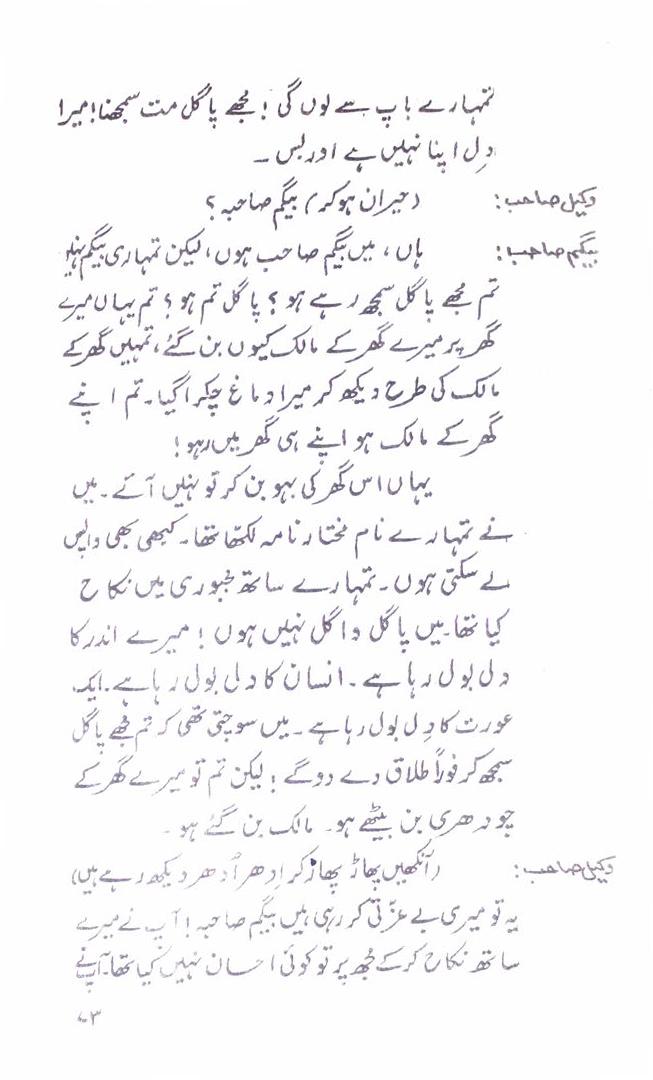 تمہارے باپ سے لوں گی! مجھے پاگل مت سمجھنا! میرا
دِل اپنا نہیں ہے اور بس ۔
وکیل صاحب: (حیران ہوکر) بیگم صاحبہ ؟
بیگم صاحب: ہاں، میں بیگم صاحب ہوں، لیکن تمہاری بیگم نہیں
تم مجھے پاگل سمجھ رہے ہو ؟ پاگل تم ہو ؟ تم یہاں میرے
گھر پر میرے گھر کے مالک کیوں بن گئے، تمہیں گھر کے
مالک کی طرح دیکھ کر میرا دماغ چکرا گیا۔ تم اپنے
گھر کے مالک ہو اپنے ہی گھر میں رہو!
یہاں اس گھر کی بہو بن کر تو نہیں آئے ۔ میں
نے تمہارے نام مختار نامہ لکھا تھا۔ کبھی بھی واپس
لے سکتی ہوں ۔ تمہارے ساتھ مجبوری میں نکاح
کیا تھا۔ میں پاگل واگل نہیں ہوں ! میرے اندر کا
دل بول رہا ہے ۔ انسان کا دل بول رہا ہے۔ ایک
عورت کا دِل بول رہا ہے ۔ میں سوچتی تھی کہ تم مجھے پاگل
سمجھ کر فوراً طلاق دے دوگے ! لیکن تم تو میرے گھر کے
چودھری بن بیٹھے ہو۔ مالک بن گئے ہو ۔
وکیل صاحب: (آنکھیں پھاڑ پھاڑ کر اِدھر اُدھر دیکھ رہے ہیں)
یہ تو میری بے عزّتی کر رہی ہیں بیگم صاحبہ ! آپ نے میرے
ساتھ نکاح کرکے مجھ پر تو کوئی احسان نہیں کیا تھا۔ آپ نے